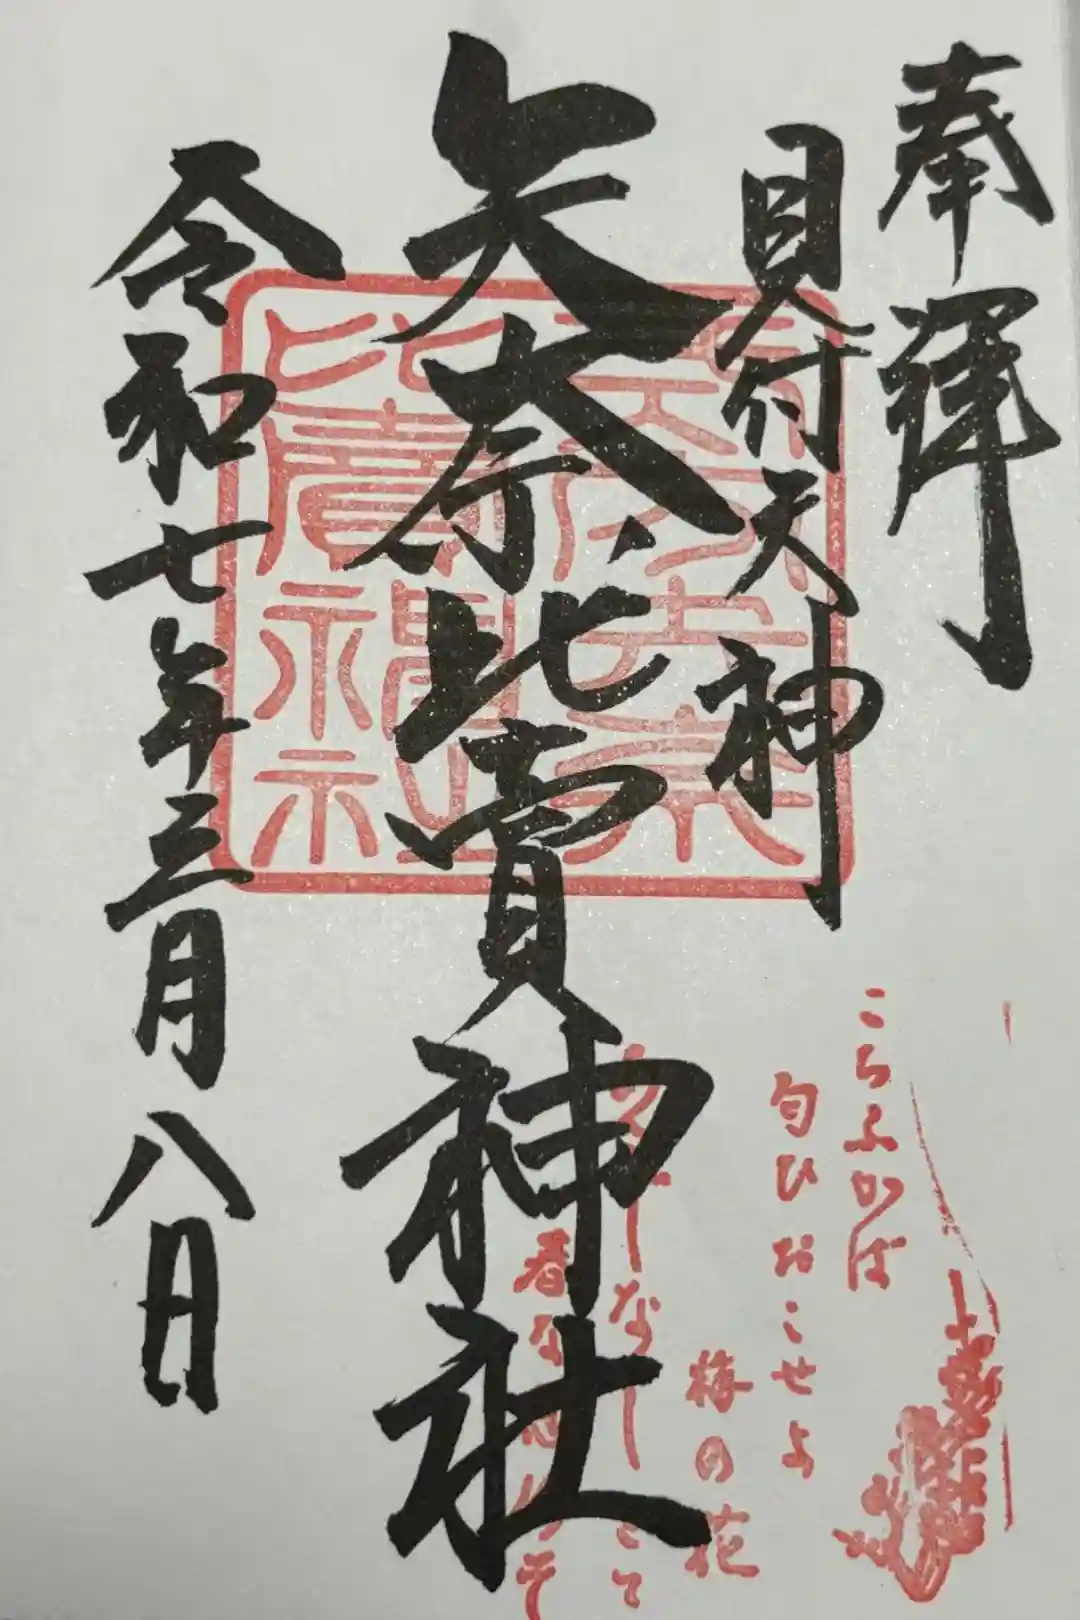 奉拝
見付天神
矢奈比賣神社
令和七年三月八日
こちふかば
匂ひおこせよ
梅の花
なしとて
春な